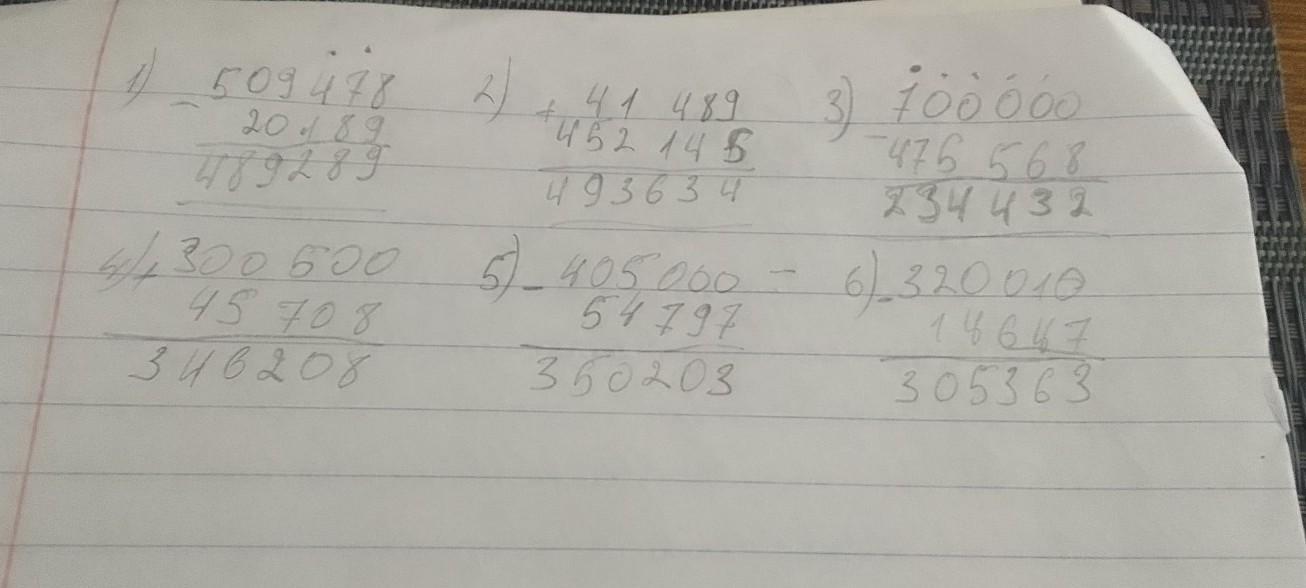 1) - 509478
20189
489289
2) + 41 489
452 145
493634
3) - 700000
475 568
234 432
4) + 300 500
45 708
346208
5) - 405 000 -
54 797
350203
6) - 320 010
14647
305363